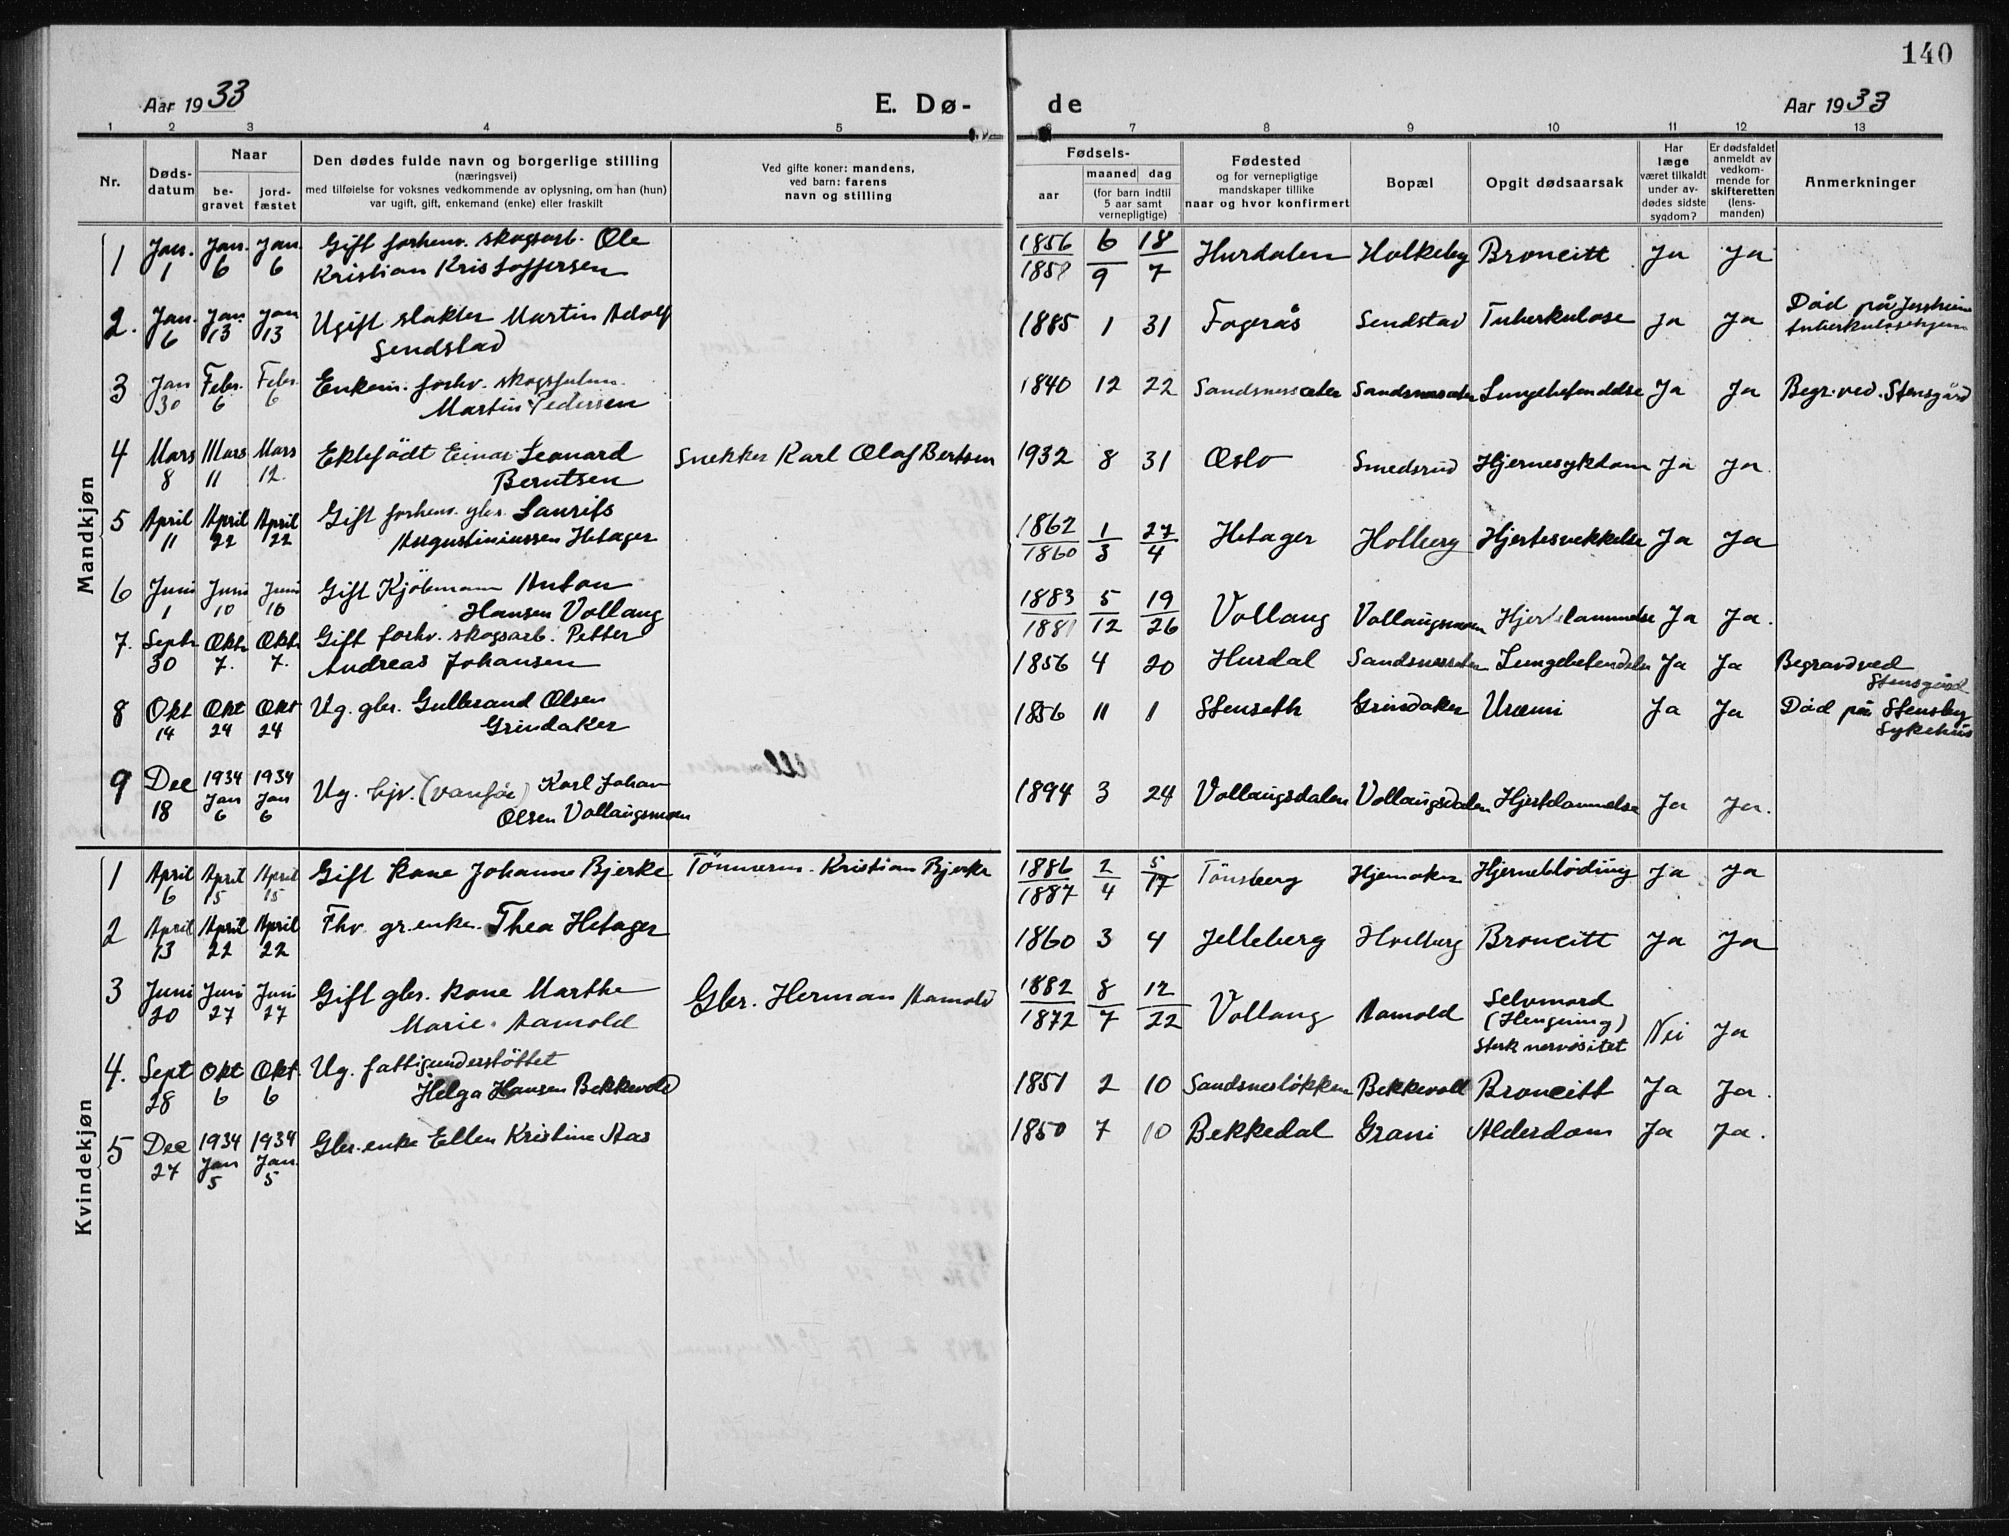 140
Aar 1933 E. Dø- de Aar 1933
1 2 3 4 5 6 7 8 9 10 11 12 13
Nr.
Døds-
datum
Naar
be-
gravet
jord-
fæstet
Den dødes fulde navn og borgerlige stilling
(næringsvei)
med tilføielse for voksnes vedkommende av oplysning, om han (hun)
var ugift, gift, enkemand (enke) eller fraskilt
Ved gifte koner: mandens,
ved barn: farens
navn og stilling
Fødsels-
aar
maaned dag
(for barn indtil
5 aar samt
vernepligtige)
Fødested
og for vernepligtige
mandskaper tillike
naar og hvor konfirmert
Bopæl
Opgit dødsaarsak
Har
læge
været tilkaldt
under av-
dødes sidste
sygdom?
Er dødsfaldet
anmeldt av
vedkom-
mende for
skifteretten
(lens-
manden)
Anmerkninger
Mandkjøn
1 Jan. 1 Jan. 6 Jan. 6 Gift forhenv. skogsarb. Ole
Kristian Kristoffersen
1856 6 18
1858 9 7
Hurdalen Holkeby Broncitt Ja Ja
2. Jan. 6 Jan 13 Jan 13 Ugift slakter Martin Adolf
Sendstad
1885 1 31 Fagerås Sendstad Tuberkulose Ja Ja Død på Jessheim
tuberkulosehjem
3 Jan 30 Febr. 6 Febr. 6 Enkem. forhv. skogsfulm.
Martin Pedersen
1840 12 22 Sandsnessæter Sandsnessæter Lungebetendelse Ja Ja Begr. ved. Stensgård
4 Mars 8 Mars 11 Mars 12. Ektefødt Einar Leonard
Berntsen
Snekker Karl Olaf Bertsen 1932 8 31 Oslo Smedsrud Hjernesykdom Ja Ja
5 April 11 April 22 April 22 Gift forhenv. gbr. Laurits
Augustiniussen Hetager
1862 1 27
1860 3 4
Hetager Holberg Hjertesvekkelse Ja Ja
6 Juni 1 Juni 10 Juni 10 Gift Kjøbmann Anton
Hansen Vollaug
1883 5 19
1881 12 26
Vollaug Vollaugsmoen Hjertelammelse Ja Ja.
7. Septr 30 Oktr 7. Oktr 7. Gift forhv. skogsarb. Petter
Andreas Johansen
1856 4 20 Hurdal Sandsnessæter Lungebetendelse Ja Ja Begravd ved
Stensgård
8 Okt 14 Okt 24 Okt 24 Ug. gbr. Gulbrand Olsen
Grindaker
1856 11 1 Stenseth Grindaker Uræmi Ja Ja Død på Stensby
Sykehus
9 Dec 18 1934 Jan 6 1934 Jan 6 Ug. hjv. (vanfør) Karl Johan
Olsen Vollaugsmoen
1894 3 24 Vollaugsdalen Vollaugsdalen Hjertelammelse Ja Ja.
Kvindekjøn
1 April 6 April 15 April 15 Gift kone Johanne Bjerke Tömmerm. Kristian Bjerke
1886 2 5
1887 4 17
Tönsberg Hjemaker Hjerneblödning Ja Ja
2 April 13 April 22 April 22 Fhv. gr. enke. Thea Hetager 1860 3 4 Jelleberg Holberg Broncitt Ja Ja
3 Juni 20 Juni 27 Juni 27 Gift gbr. kone Marthe
Marie Aamold
Gbr. Herman Aamold
1882 8 12
1872 7 22
Vollaug Aamold Selvmord
(Hengning)
Sterk nervøsitet
Nei Ja
4. Sept 28 Okt 6 Okt. 6 Ug. fattigunderstöttet
Helga Hansen Bekkevold
1851 2 10 Sandsneslökken Bekkevold Broncitt Ja Ja.
5 Dec 27 1934 Jan 5 1934 Jan. 5 Gbr. enke Ellen Kristine Aas 1850 7 10 Bekkedal Grani Alderdom Ja Ja.